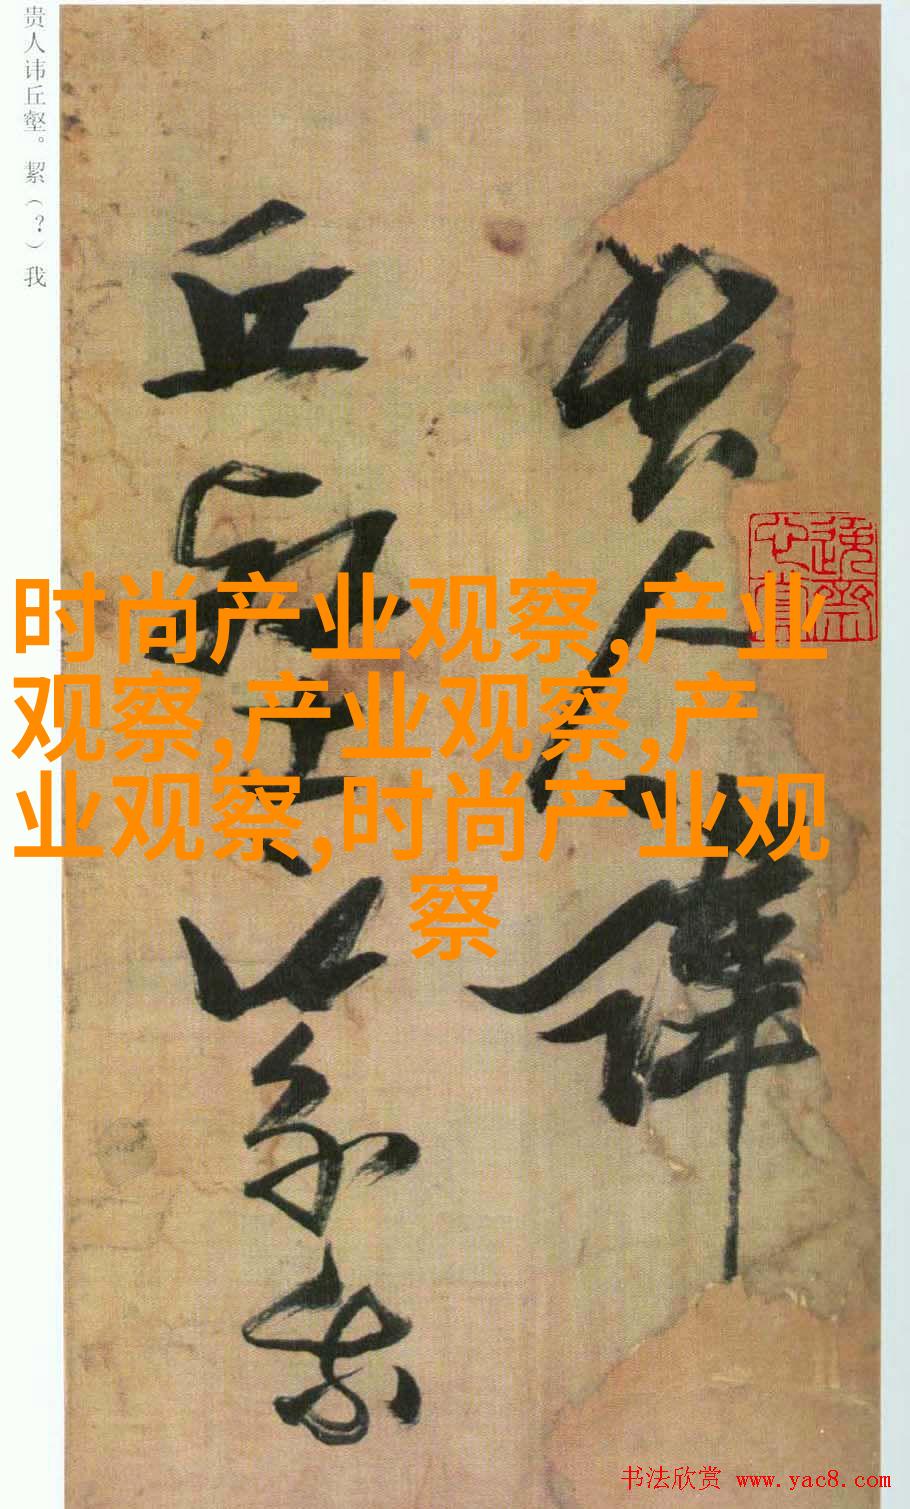 贵人讳丘壑。絜（？）我
贵人讳
丘壑。絜我
时尚产业观察,产业
观察,产业观察,产
业观察,时尚产业观
察
书法欣赏 www.yac8.com